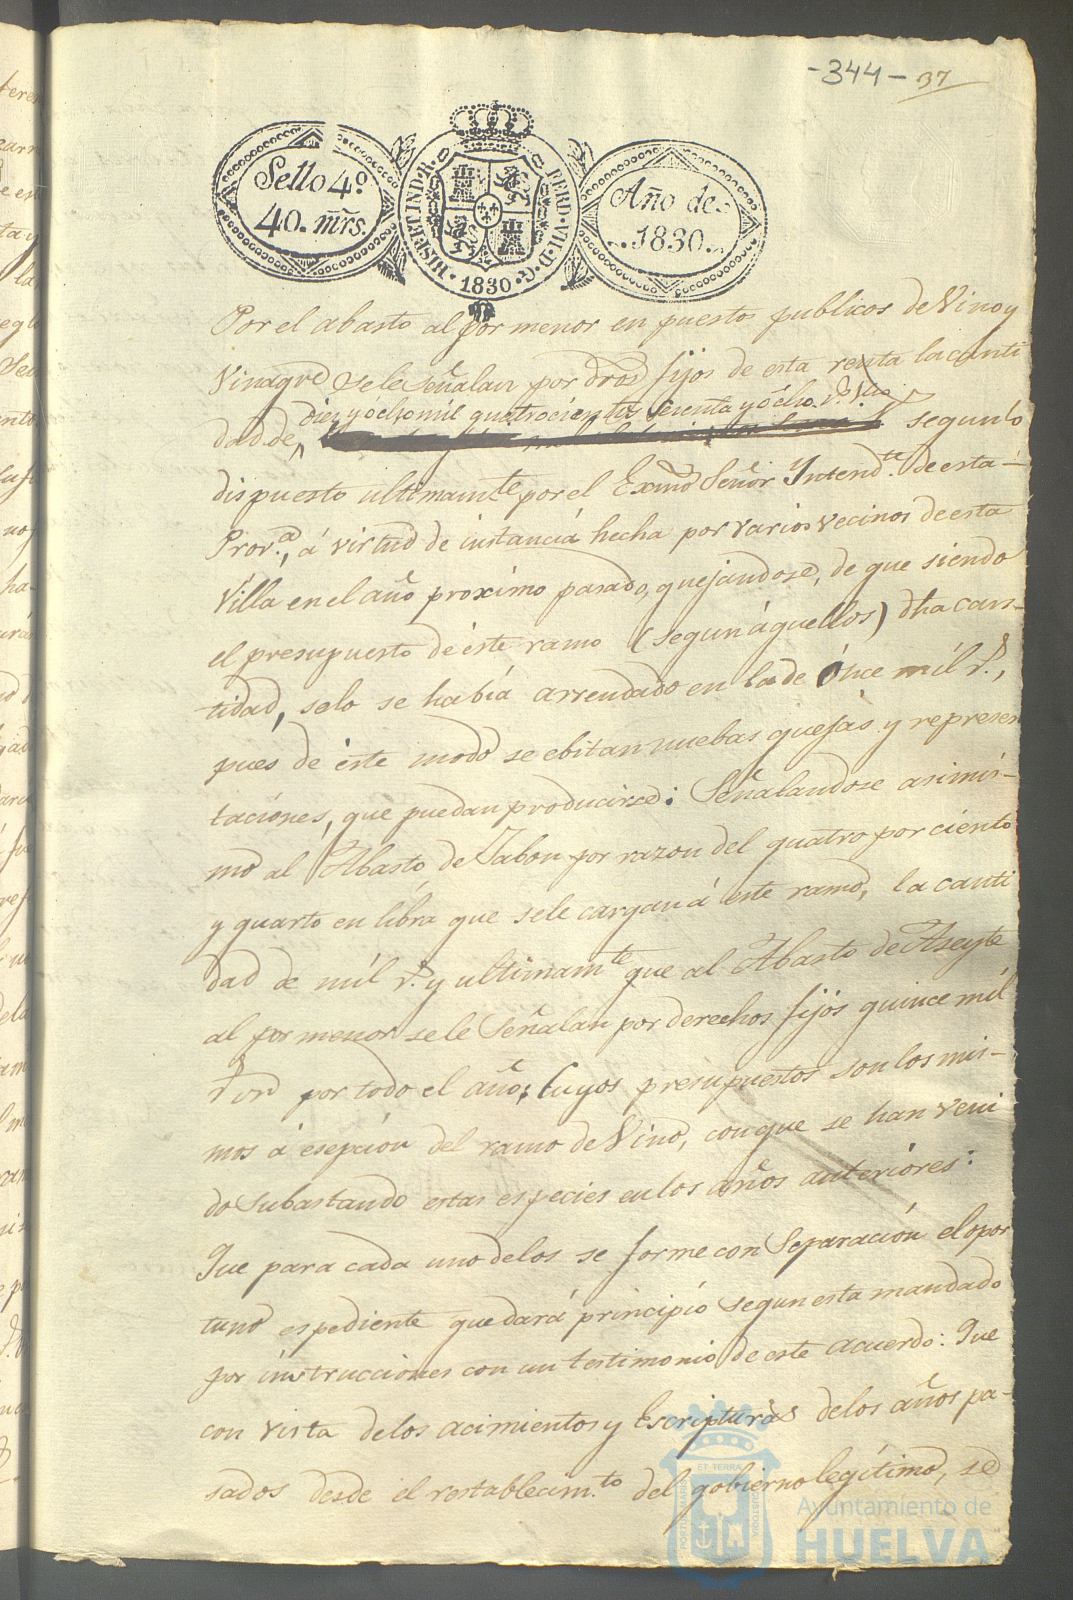 -344- 37
Sello 4º
40. mrs.
HISP. ET IND. R. FERD. VII. D. G. 1830
Año de
1830.
Por el abasto al por menor en puestos publicos de Vino y
Vinagre se le señalan por dros fijos de esta renta la canti
diez y ocho mil quatrocientos setenta y ocho rs. Vn
dad de, segun lo
dispuesto ultimamte por el Exmo Señor Yntendte. de esta
Prova., á virtud de instancia hecha por varios vecinos de esta
Villa en el año proximo pasado, quejandose, de que siendo
el presupuesto de este ramo (segun áquellos) dha can-
tidad, solo se había arrendado en la de Once mil rs.,
pues de éste modo se ebitan nuebas quejas y represen
taciónes, que puedan producirse: Señalandose asimis-
mo al Abasto de Jabon por razon del quatro por ciento
y quarto en libra que se le cargan á este ramo, la canti
dad de mil rs. y ultimamte que al Abasto de Aseyte
al por menor se le Señalan por derechos fijos quince mil
rs vn por todo el año; Cuyos presupuestos son los mis-
mos á esepción del ramo de Vino, con que se han veni
do Subastando estas especies en los años anterióres:
Que para cada uno de los se forme con Separación el opor
tuno espediente que dará principió segun esta mandado
por instrucciones con un testimonio de este acuerdo: Que
con vista de los acimientos y Escripturas de los años pa-
sados desde el restablecimto. del gobierno legítimo, se
ET TERRA
PORTUS MARIS CUSTODIA
Ayuntamiento de
HUELVA